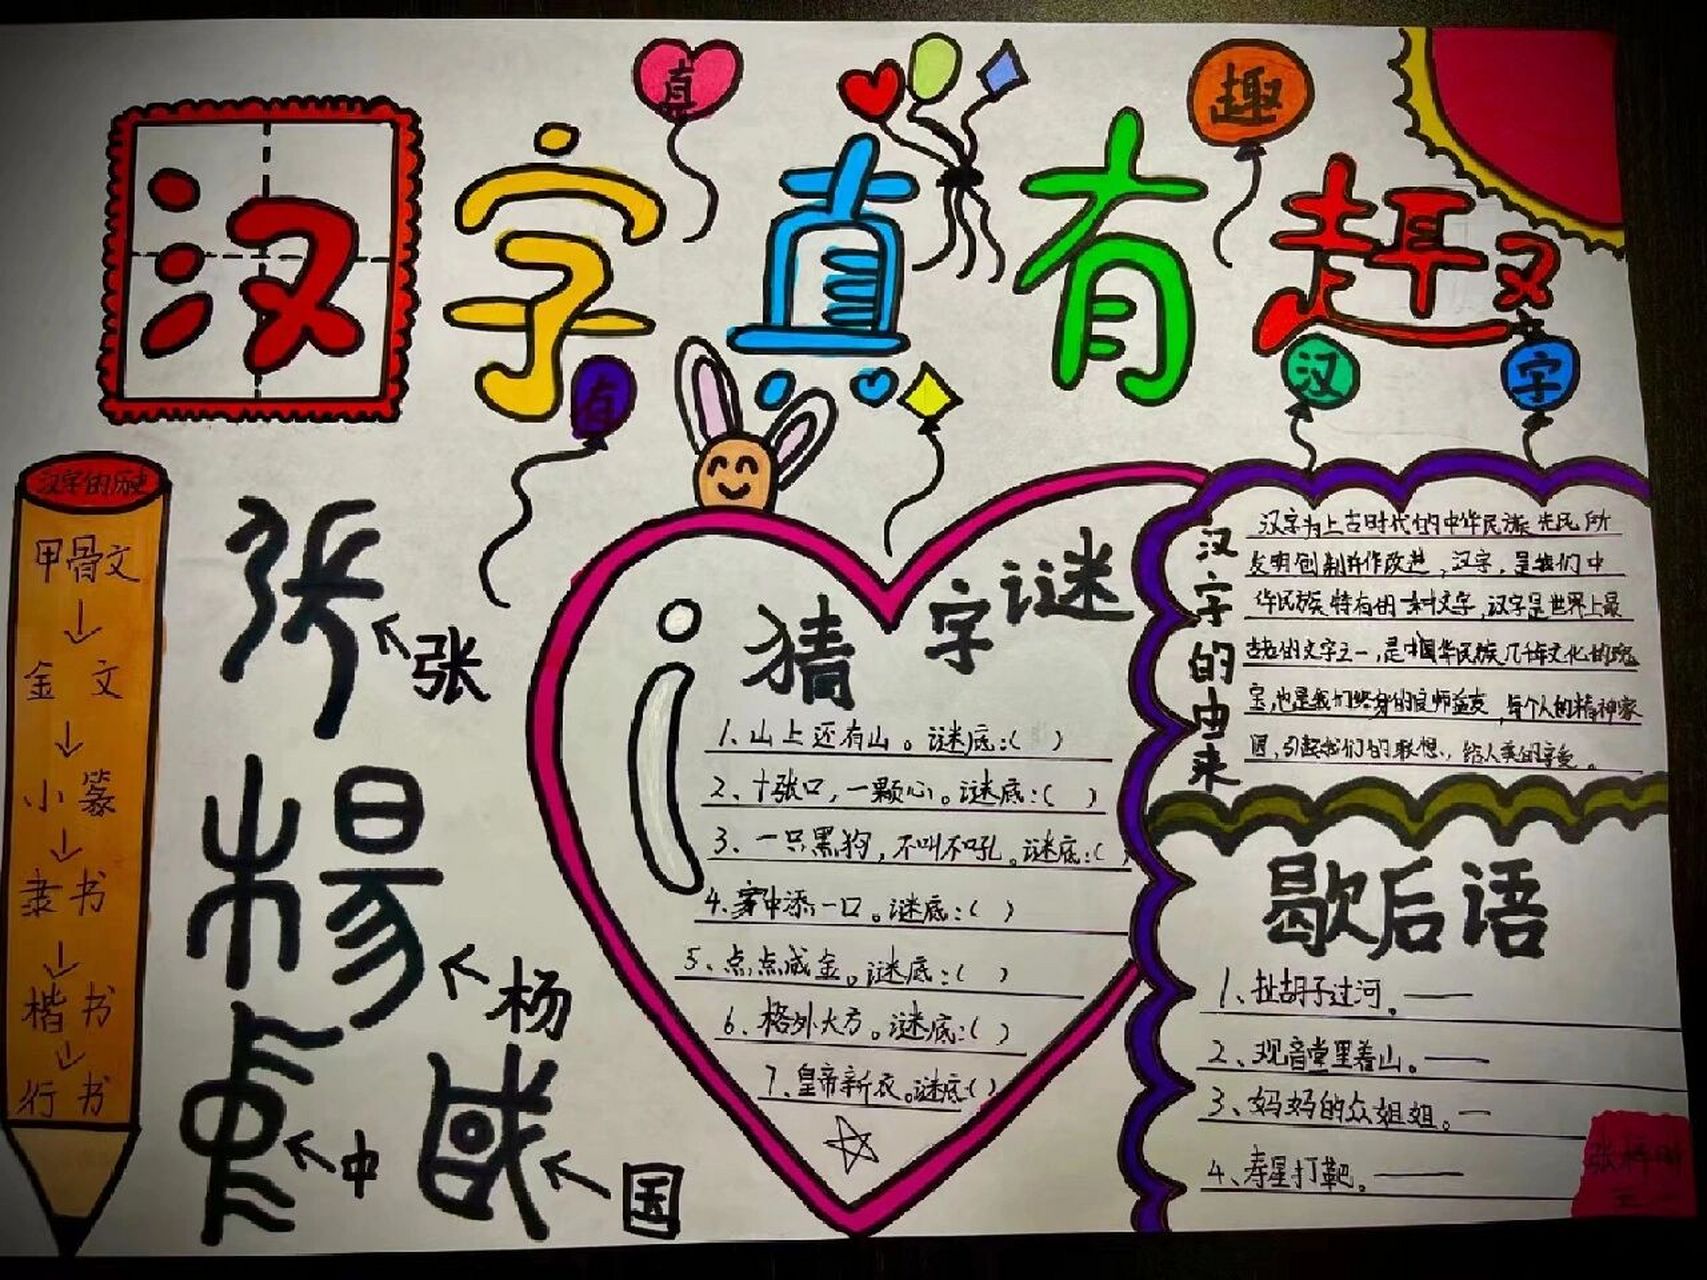 真
趣
汉字真有趣
有
汉
字
汉字的历史
甲骨文
金文
小篆
隶书
楷书
行书
張
张
楊
杨
中
中
國
国
猜字谜
1、山上还有山。谜底:( )
2、十张口,一颗心。谜底:( )
3、一只黑狗,不叫不吼。谜底:(
4、家中添一口。谜底:( )
5、点点成金。谜底:( )
6、格外大方。谜底:( )
7、皇帝新衣。谜底:( )
汉字的由来
汉字为上古时代的中华民族先民所
发明创制并作改进,汉字,是我们中
华民族特有的一种文字,汉字是世界上最
古老的文字之一,是中国华民族几千年文化的瑰
宝,也是我们终身的良师益友,每个人的精神家
园,引起我们的联想,给人美的享受。
歇后语
1、扯胡子过河。——
2、观音堂里着山。——
3、妈妈的众姐姐。—
4、寿星打靶。——
张